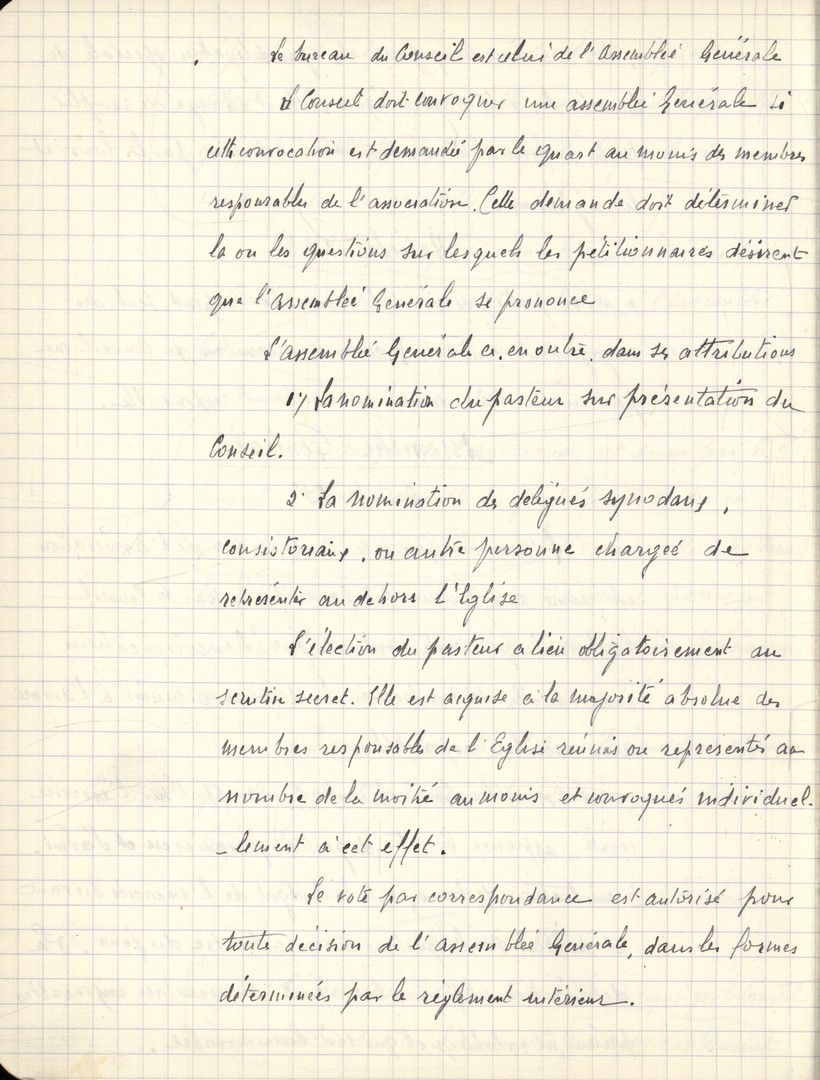 Le bureau du Conseil est celui de l'Assemblée Générale
Le Conseil doit convoquer une assemblée Générale si
cette convocation est demandée par le quart au moins des membres
responsables de l'association. Cette demande doit déterminer
la ou les questions sur lesquels les pétitionnaires désirent
que l'Assemblée Générale se prononce
L'assemblée Générale a, en outre, dans ses attributions
1°/ La nomination du pasteur sur présentation du
Conseil.
2° La nomination des délégués synodaux,
consistoriaux, ou autre personne chargée de
représenter au dehors l'Eglise
L'élection du pasteur a lieu obligatoirement au
scrutin secret. Elle est acquise à la majorité absolue des
membres responsables de l'Eglise réunis ou représentés au
nombre de la moitié au moins et convoqués individuel-
-lement à cet effet.
Le vote par correspondance est autorisé pour
toute décision de l'assemblée Générale, dans les formes
déterminées par le règlement intérieur.